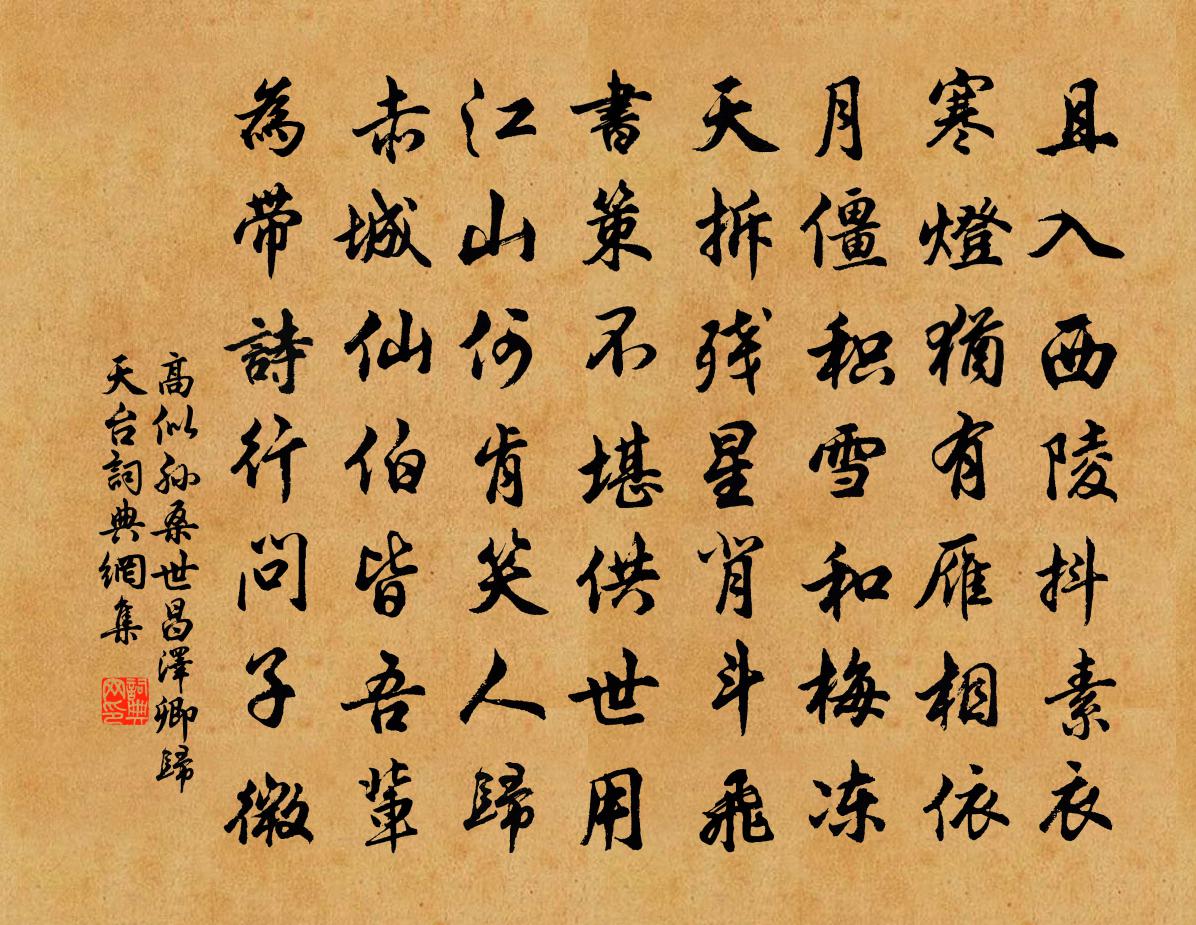 且入西陵抖素衣
寒燈猶有雁相依
月僵积雪和梅冻
天拆残星肖斗飛
書策不堪供世用
江山何肯笑人歸
赤城仙伯皆吾輩
為帶詩行問子微
高似孙桑世昌澤卿歸
天台詞典網集
詞典網印